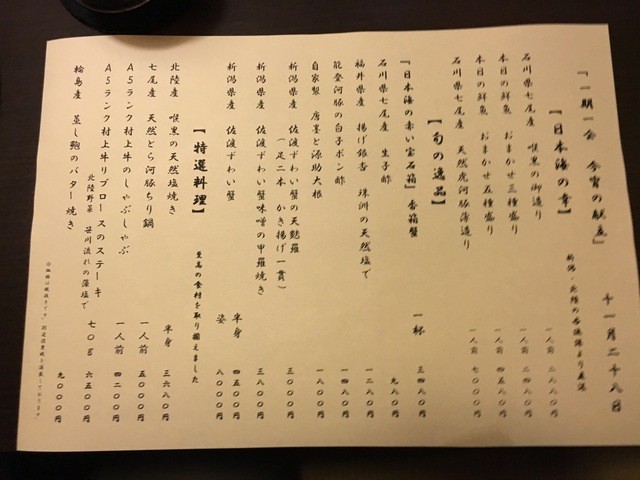 『一期一会 今宵の献立』 十一月二十八日
【日本海の幸】 新潟・北陸の各漁港より直送
石川県七尾産 喉黒の御造り 一人前 二八〇〇円
本日の鮮魚 おまかせ三種盛り 一人前
本日の鮮魚 おまかせ五種盛り 一人前
石川県七尾産 天然虎河豚薄造り 一人前 七〇〇〇円
【旬の逸品】
『日本海の赤い宝石箱』香箱蟹 一杯 三四八〇円
石川県七尾産 生子酢 九八〇円
福井県産 揚げ銀杏 珠洲の天然塩で 一二八〇円
能登河豚の白子ポン酢 一四八〇円
自家製 唐墨と源助大根 一八〇〇円
新潟県産 佐渡ずわい蟹の天麩羅 三〇〇〇円
(足二本 かき揚げ一貫)
新潟県産 佐渡ずわい蟹味噌の甲羅焼き 三八〇〇円
新潟県産 佐渡ずわい蟹 半身 四五〇〇円
姿 八〇〇〇円
【特選料理】 至高の食材を取り揃えました
北陸産 喉黒の天然塩焼き 半身 三六八〇円
七尾産 天然とら河豚ちり鍋 一人前 五〇〇〇円
A5ランク村上牛のしゃぶしゃぶ 一人前 四二〇〇円
A5ランク村上牛リブロースのステーキ 七〇g 六五〇〇円
北陸野菜 笹川流れの藻塩で
輪島産 蒸し鮑のバター焼き 九〇〇〇円